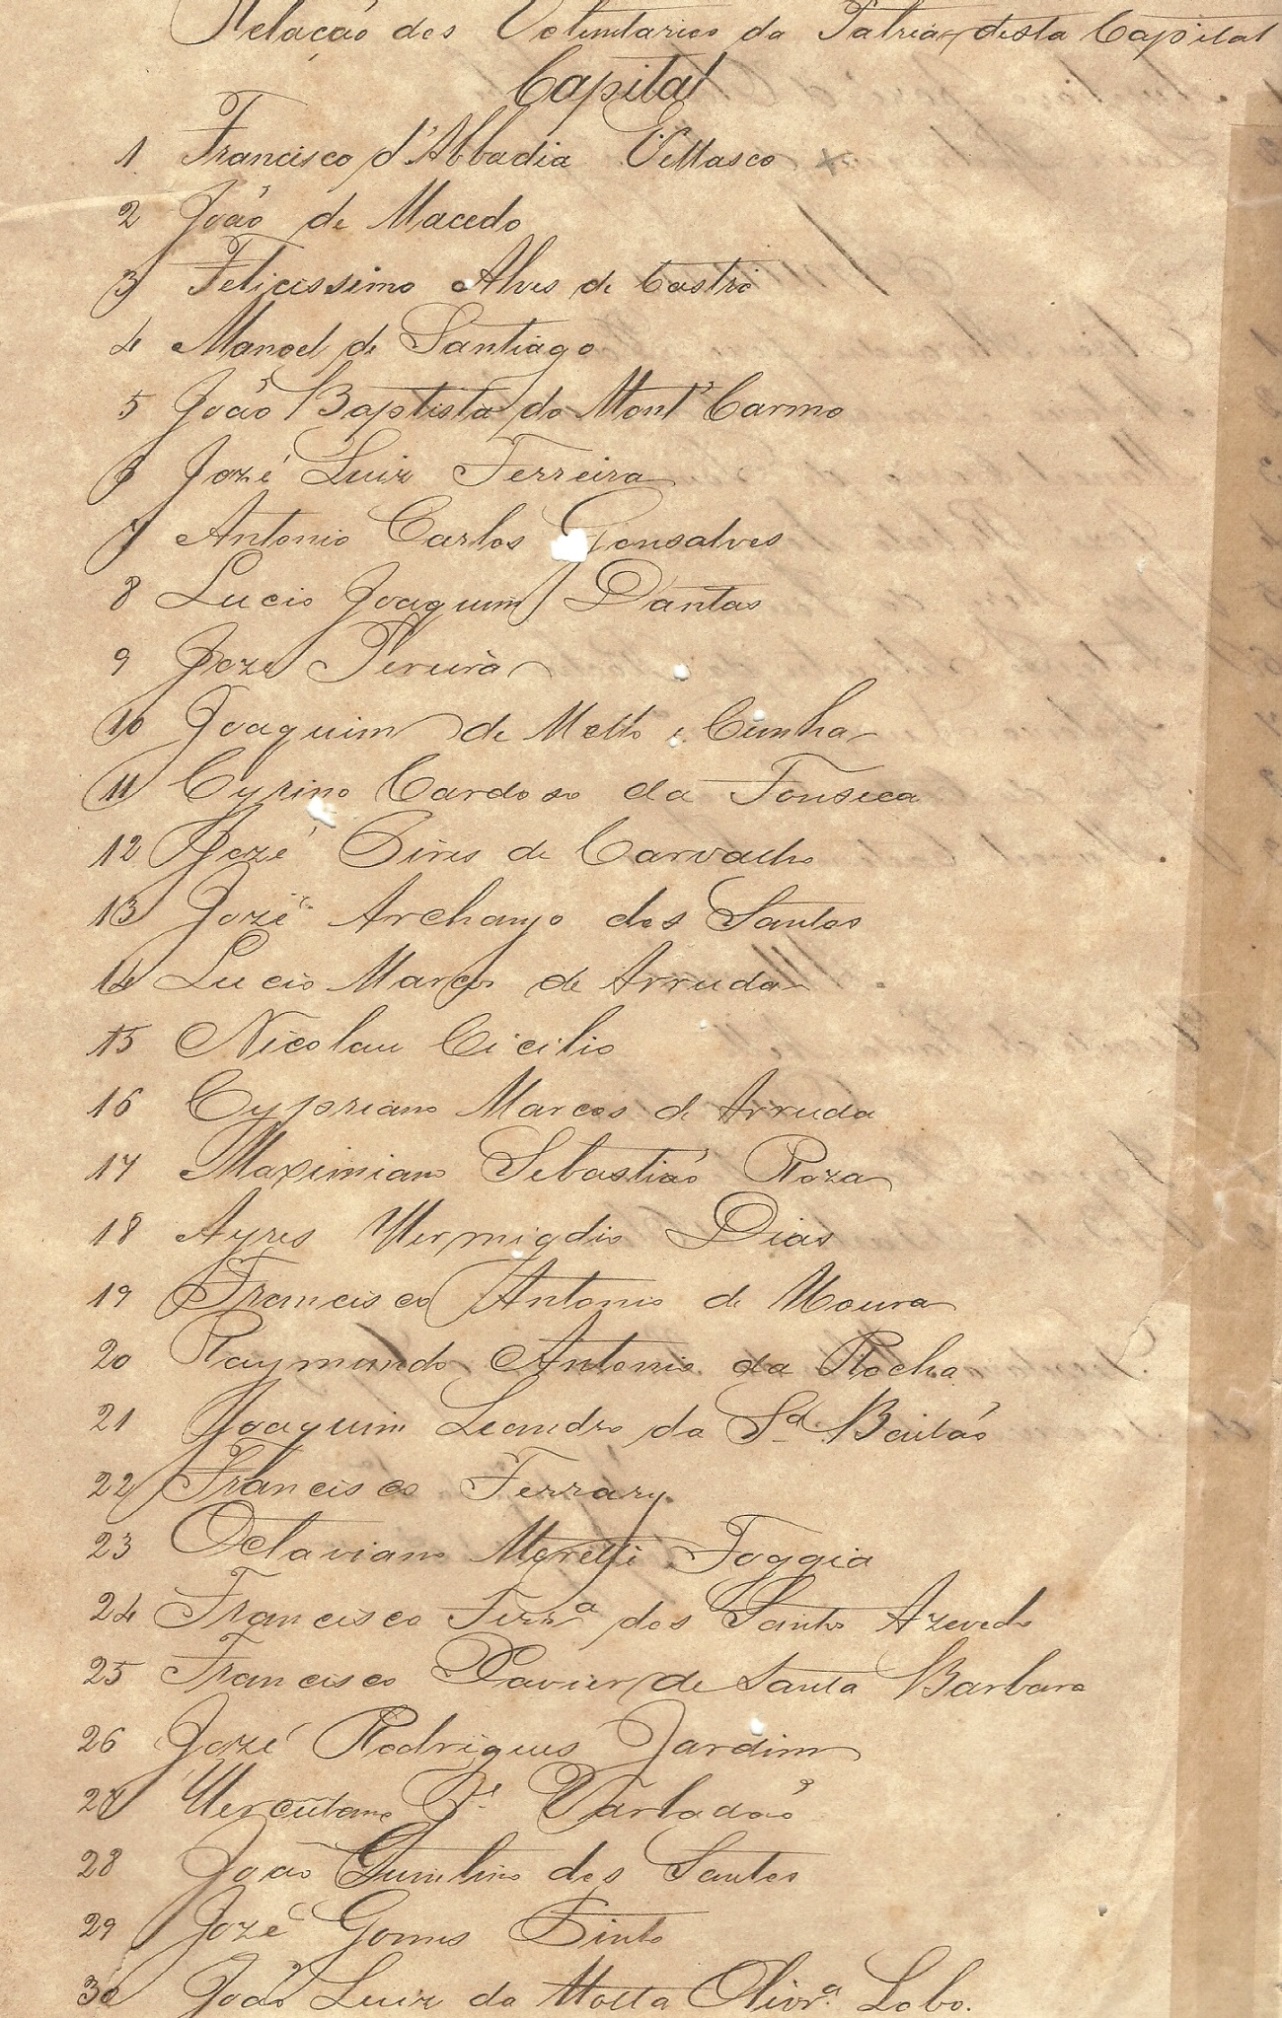 Relação dos Voluntarios da Patria desta Capital
Capital
1 Francisco d'Abbadia Vellasco
2 João de Macedo
3 Felicissimo Alves de Castro
4 Manoel de Santiago
5 João Baptista do Mont' Carmo
6 Jozé Luiz Ferreira
7 Antonio Carlos Gonsalves
8 Lucio Joaquim Dantas
9 Joze Pereira
10 Joaquim de Mello e Cunha
11 Cyrino Cardoso da Fonseca
12 Jozé Pires de Carvalho
13 Jozé Archanjo dos Santos
14 Lucio Marcos de Arruda
15 Nicolau Cicilio
16 Cypriano Marcos d Arruda
17 Maximiano Sebastião Roza
18 Ayres Hermigdio Dias
19 Francisco Antonio de Moura
20 Raymundo Antonio da Rocha
21 Joaquim Leandro da Sª Bailão
22 Francisco Ferrary
23 Octaviano Foggia
24 Francisco Ferrª dos Santos Azevedo
25 Francisco Xavier de Santa Barbara
26 Jozé Rodrigues Jardim
27 Herculano
28 João dos Santos
29 Jozé Gomes Pinto
30 João Luiz da Motta Olivrª Lobo.